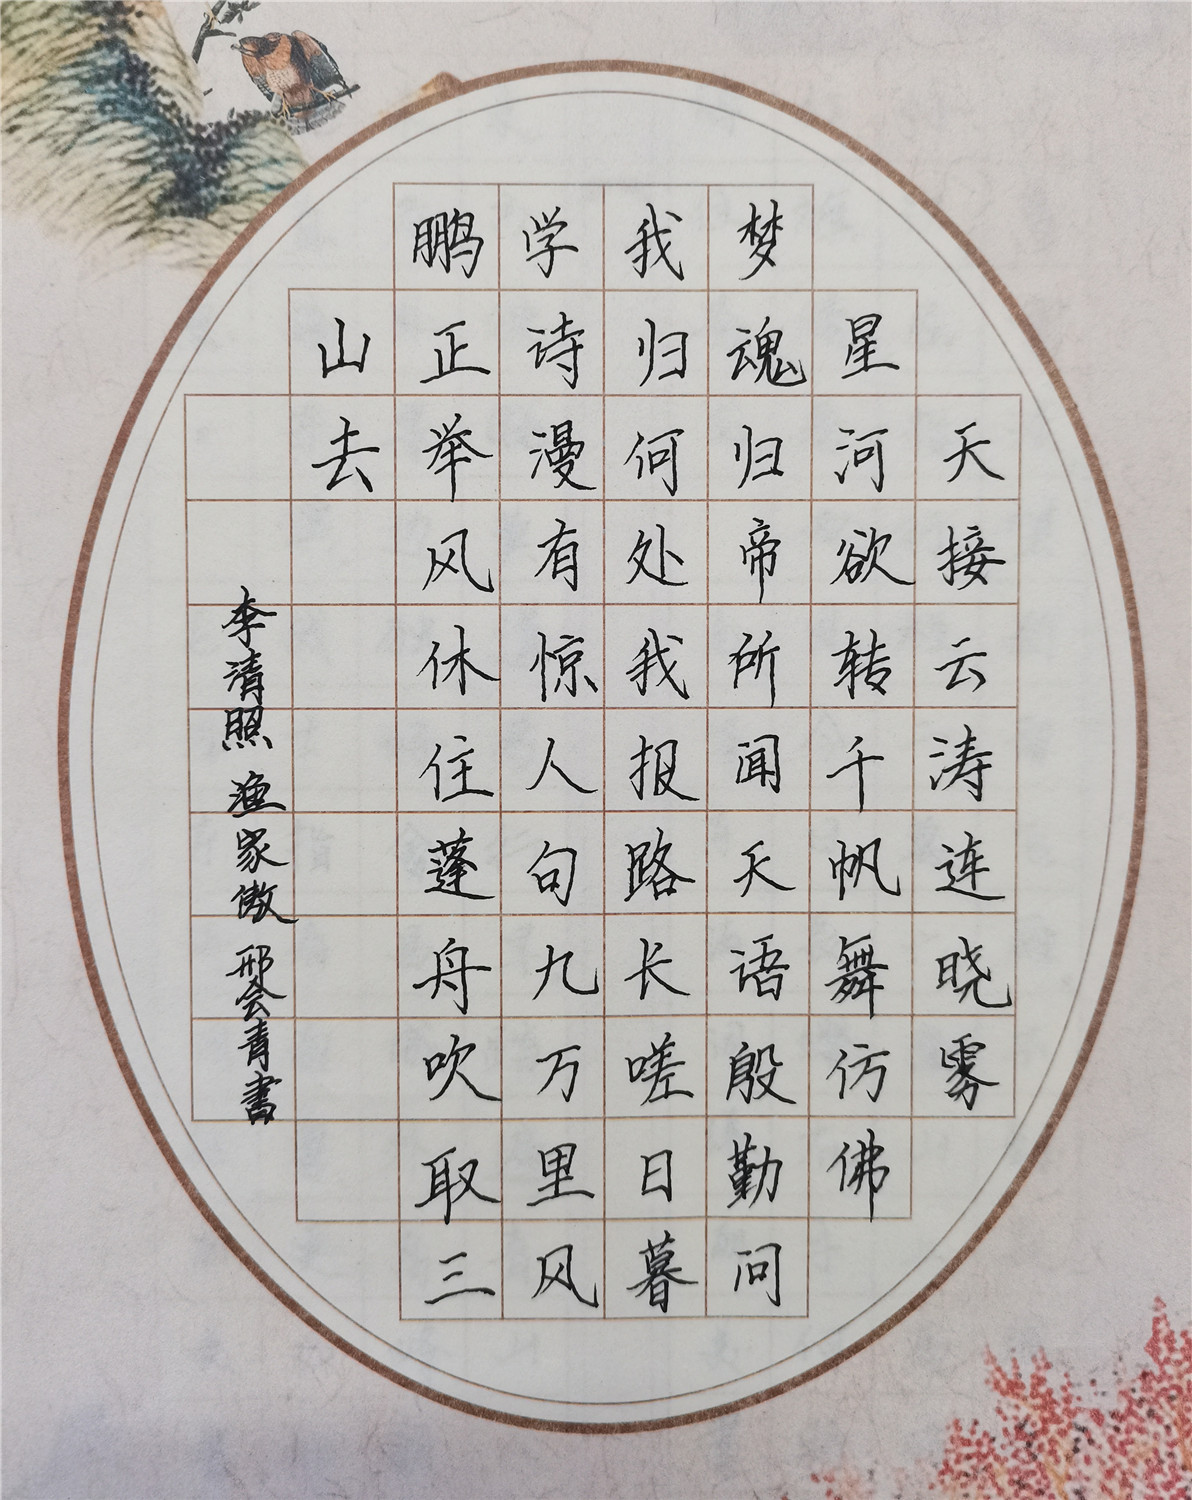 天接云涛连晓雾
星河欲转千帆舞仿佛
梦魂归帝所闻天语殷勤问
我归何处我报路长嗟日暮
学诗漫有惊人句九万里风
鹏正举风休住蓬舟吹取三
山去
李清照 渔家傲 邢会青书